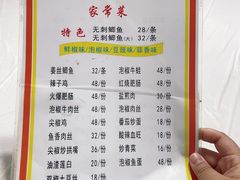 家常菜
特色 无刺鲫鱼 28/条
无刺鲫鱼(大) 32/条
鲜椒味/泡椒味/豆豉味/蒜香味
姜丝鲫鱼 32/条
泡椒牛蛙 48/份
辣子鸡 48/份
红烧肥肠 48/份
火爆肥肠 48/份
盐煎肉 30/份
泡椒牛肉丝
泡椒肉丝
尖椒鸡 48/份
鱼香肉丝 32/份
酸辣血旺 18/份
尖椒炒拱嘴 36/份
炒青菜 16/份
油渣莲白 20/份
泡椒鱼蛋 48/份